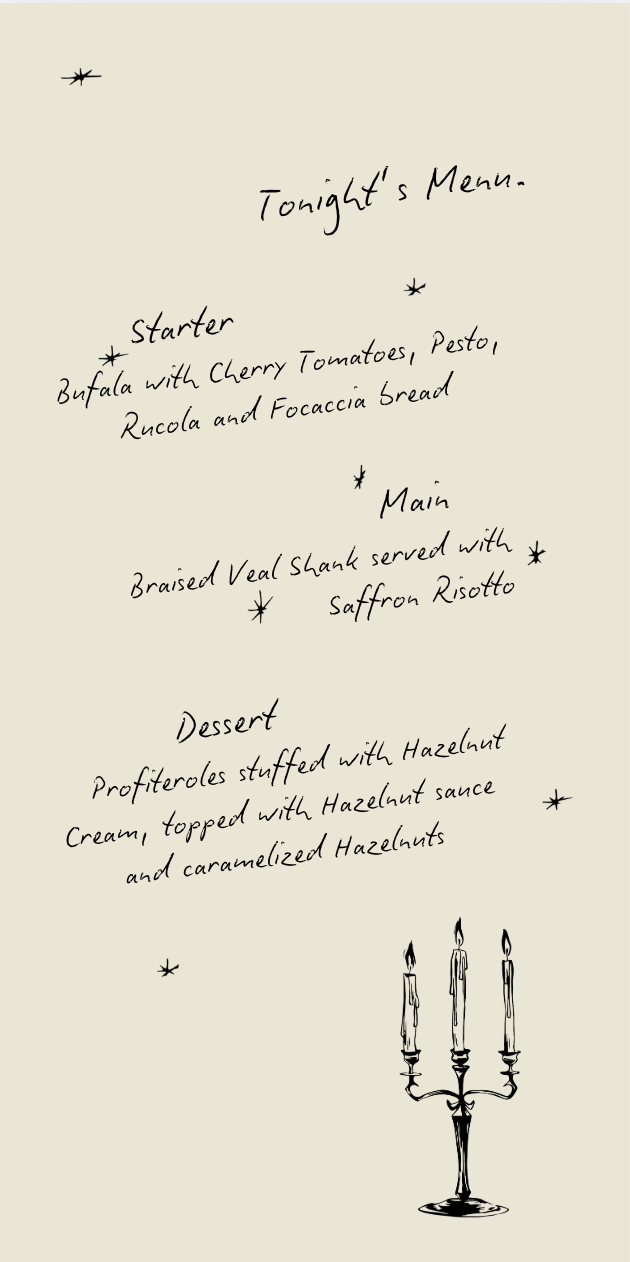 Tonight's Menu.
Starter
Bufala with Cherry Tomatoes, Pesto,
Rucola and Focaccia bread
Main
Braised Veal Shank served with
Saffron Risotto
Dessert
Profiteroles stuffed with Hazelnut
Cream, topped with Hazelnut sauce
and caramelized Hazelnuts